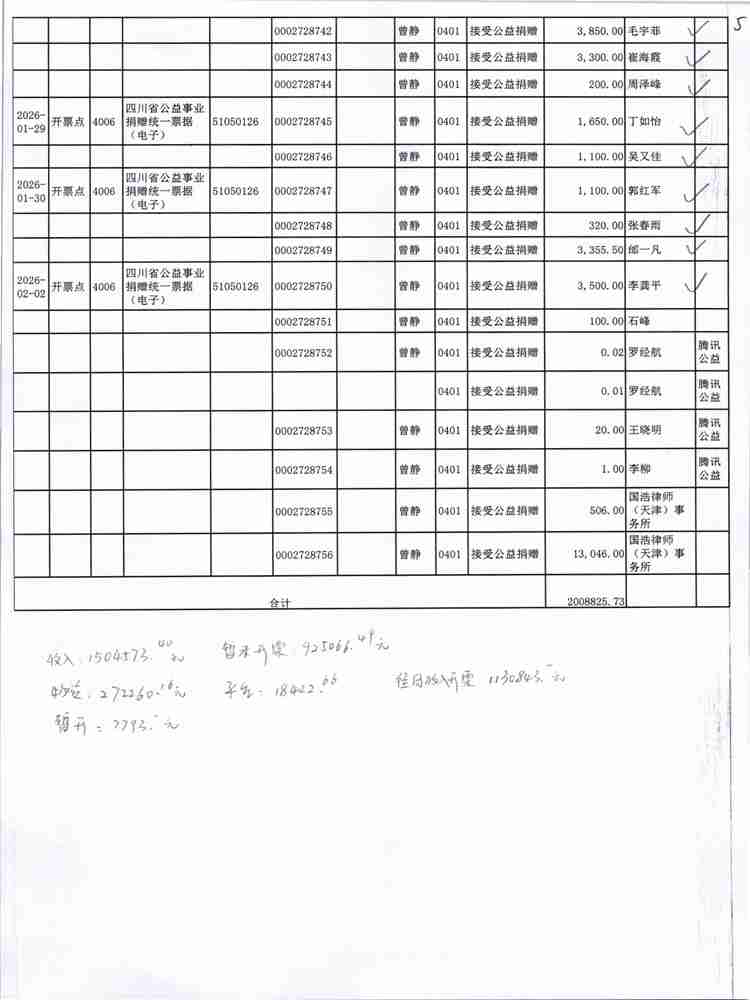 5
0002728742 曾静 0401 接受公益捐赠 3,850.00 毛宇菲
0002728743 曾静 0401 接受公益捐赠 3,300.00 崔海霞
0002728744 曾静 0401 接受公益捐赠 200.00 周泽峰
2026-01-29 开票点 4006 四川省公益事业捐赠统一票据（电子） 51050126 0002728745 曾静 0401 接受公益捐赠 1,650.00 丁如怡
0002728746 曾静 0401 接受公益捐赠 1,100.00 吴又佳
2026-01-30 开票点 4006 四川省公益事业捐赠统一票据（电子） 51050126 0002728747 曾静 0401 接受公益捐赠 1,100.00 郭红军
0002728748 曾静 0401 接受公益捐赠 320.00 张春雨
0002728749 曾静 0401 接受公益捐赠 3,355.50 邰一凡
2026-02-02 开票点 4006 四川省公益事业捐赠统一票据（电子） 51050126 0002728750 曾静 0401 接受公益捐赠 3,500.00 李龚平
0002728751 曾静 0401 接受公益捐赠 100.00 石峰
0002728752 曾静 0401 接受公益捐赠 0.02 罗经航 腾讯公益
0401 接受公益捐赠 0.01 罗经航 腾讯公益
0002728753 曾静 0401 接受公益捐赠 20.00 王晓明 腾讯公益
0002728754 曾静 0401 接受公益捐赠 1.00 李柳 腾讯公益
0002728755 曾静 0401 接受公益捐赠 506.00 国浩律师（天津）事务所
0002728756 曾静 0401 接受公益捐赠 13,046.00 国浩律师（天津）事务所
合计 2008825.73
收入：1504573.40元 暂未开票：925066.49元
物资：272260.16元 平台：18422.66 往月收入开票 1130843.-元
暂开：7793.-元